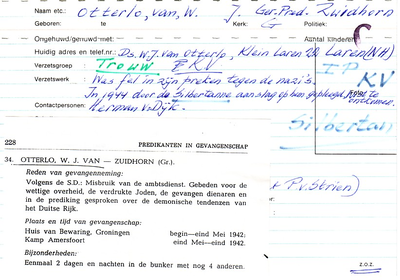 Naam etc.: Otterlo, van, W. J. Ger. Pred. Zuidhorn
Geboren: te Kerk: G Politiek:
Ongehuwd/gehuwd met: Aantal kinderen:
Huidig adres en telef.nr.: Ds. W.J. van Otterlo, Klein Laren 22, Laren (NH)
Verzetsgroep Trouw KV IP
Verzetswerk : Was fel in zijn preken tegen de nazi's. KV
In 1944 door de Silbertanne aanslag op hem gepleegd
Contactpersonen: Herman v. Dijk.
Silbertan
228 PREDIKANTEN IN GEVANGENSCHAP
34. OTTERLO, W. J. VAN — ZUIDHORN (Gr.).
Reden van gevangenneming:
Volgens de S.D.: Misbruik van de ambtsdienst. Gebeden voor de
wettige overheid, de verdrukte Joden, de gevangen dienaren en
in de prediking gesproken over de demonische tendenzen van
het Duitse Rijk.
P. v. Strien)
Plaats en tijd van gevangenschap:
Huis van Bewaring, Groningen begin—eind Mei 1942;
Kamp Amersfoort eind Mei—1942.
Bijzonderheden:
Eenmaal 2 dagen en nachten in de bunker met nog 4 anderen.
z.o.z.